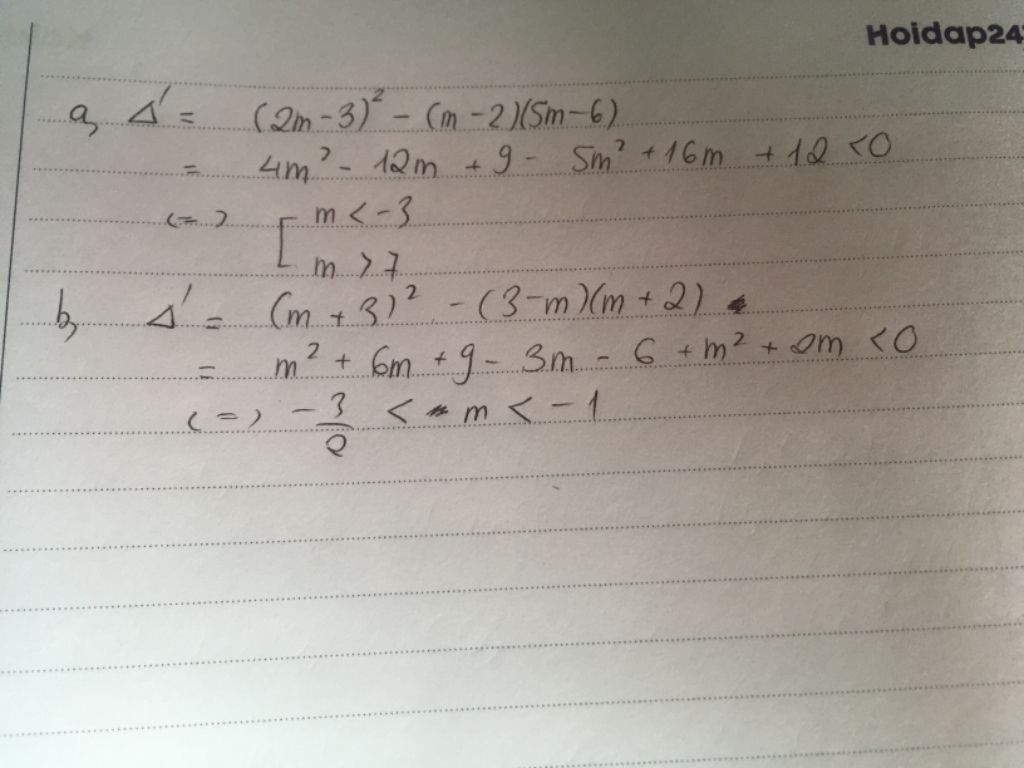 Hoidap24
a, Δ' = (2m-3)² - (m-2)(5m-6)
= 4m² - 12m + 9 - 5m² + 16m + 12 < 0
<=> [ m < -3
m > 7
b, Δ' = (m+3)² - (3-m)(m+2)
= m² + 6m + 9 - 3m - 6 + m² + 2m < 0
<=> -3/2 < m < -1